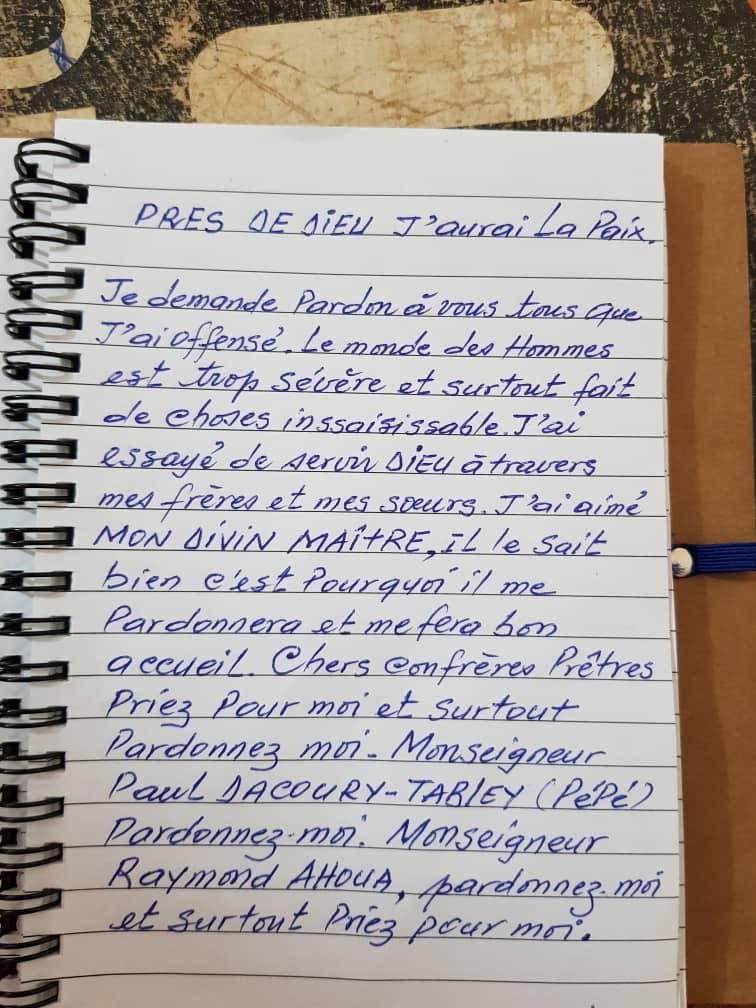 PRES DE DIEU J'aurai La Paix.
Je demande Pardon à vous tous que
J'ai offensé. Le monde des Hommes
est trop sévère et surtout fait
de choses inssaisissable. J'ai
essayé de servir DIEU à travers
mes frères et mes sœurs. J'ai aimé
MON DIVIN MAÎTRE, IL le sait
bien c'est Pourquoi il me
Pardonnera et me fera bon
accueil. Chers Confrères Prêtres
Priez Pour moi et surtout
Pardonnez moi. Monseigneur
Paul DACOURY-TABLEY (PéPé)
Pardonnez-moi. Monseigneur
Raymond AHOUA, pardonnez-moi
et surtout Priez pour moi.